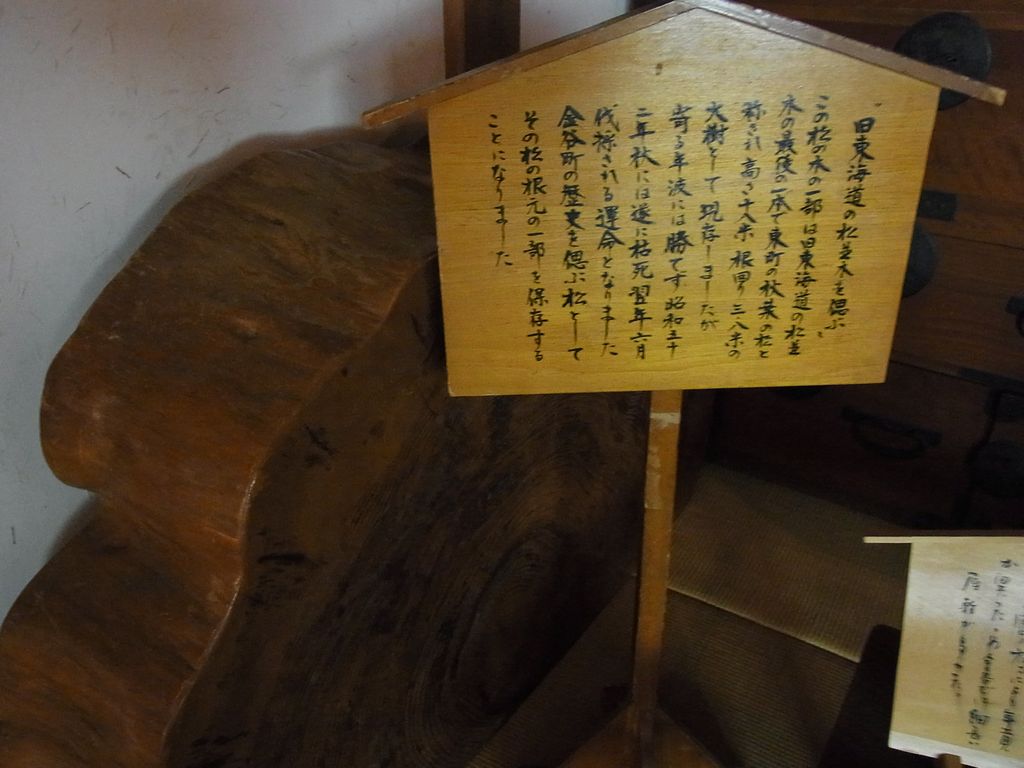 "旧東海道の松並木を偲ぶ"
この松の木の一部は旧東海道の松並
木の最後の一本で東町の秋葉の松と
称され高さ十八米根囲り三、八米の
大樹として現存しましたが
寄る年波には勝てず昭和五十
二年秋には遂に枯死翌年六月
伐採される運命となりました
金谷町の歴史を偲ぶ松として
その松の根元の一部を保存する
ことになりました